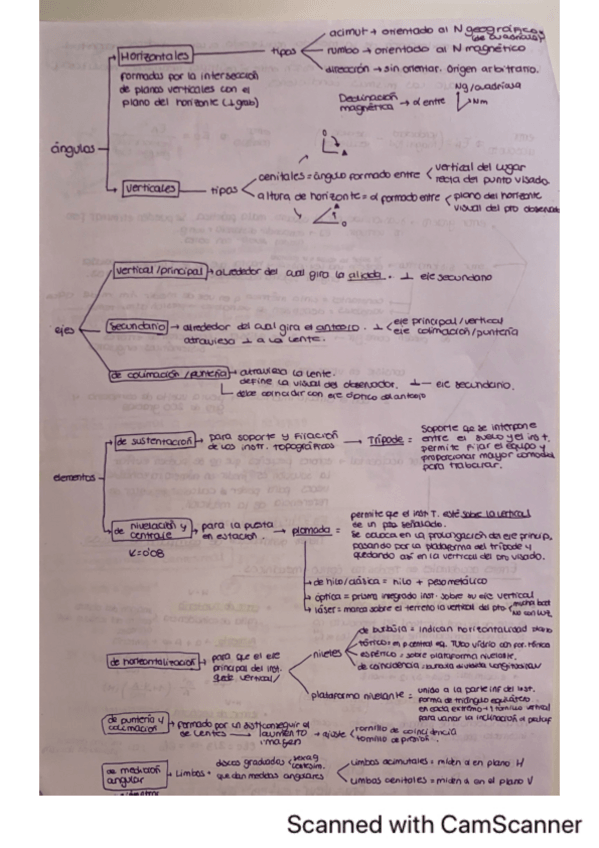 acimut → orientado al N geográfico
Horizontales
tipos
rumbo → orientado al N magnético
formados por la intersección
dirección → sin orientar. Origen arbitrario.
de planos verticales con el
plano del horizonte
Declinación
magnética → α entre
Nm
ángulos
verticales
tipos
cenitales = ángulo formado entre
vertical del lugar
recta del punto visado
altura de horizonte = α formado entre
plano del horizonte
visual del pto
vertical/principal → alrededor del cual gira la alidada. ⊥ eje secundario
ejes
secundario → alrededor del cual gira el anteojo. ⊥
eje principal/vertical
eje colimación/puntería
atraviesa ⊥ a la lente.
de colimación/puntería → atraviesa la lente.
define la visual del observador. ⊥ eje secundario.
debe coincidir con eje óptico del anteojo
elementos
de sustentación → para soporte y fijación
de los instr. topográficos
→ Trípode =
Soporte que se interpone
entre el suelo y el inst.
permite fijar el equipo y
proporcionar mayor comodidad
para trabajar.
de nivelación y
centraje
K=0'08
para la puesta
en estación.
→ plomada =
permite que el inst T. esté sobre la vertical
de un pto señalado.
Se coloca en la prolongación del eje princip.
pasando por la plataforma del trípode y
quedando así en la vertical del pto visado.
de hilo/clásica = hilo + peso metálico
óptica = prisma integrado inst. sobre su eje vertical
láser = marca sobre el terreno la vertical del pto
de horizontalización → para que el eje
principal del inst.
quede vertical
niveles
de burbuja = indican horizontalidad
esférico = sobre plataforma nivelante.
de coincidencia = burbuja dividida
plataforma nivelante =
unido a la parte inf del inst.
forma de triángulo equilátero.
en cada extremo → 1 tornillo vertical
para variar la inclinación
de puntería y
colimación
formado por un sist
de lentes
conseguir el
aumento
imagen
ajuste
tornillo de coincidencia
tornillo de presión.
de medición
angular
→ Limbos →
discos graduados
que dan medidas angulares
limbos acimutales = miden α en plano H
limbos cenitales = miden α en el plano V
Scanned with CamScanner